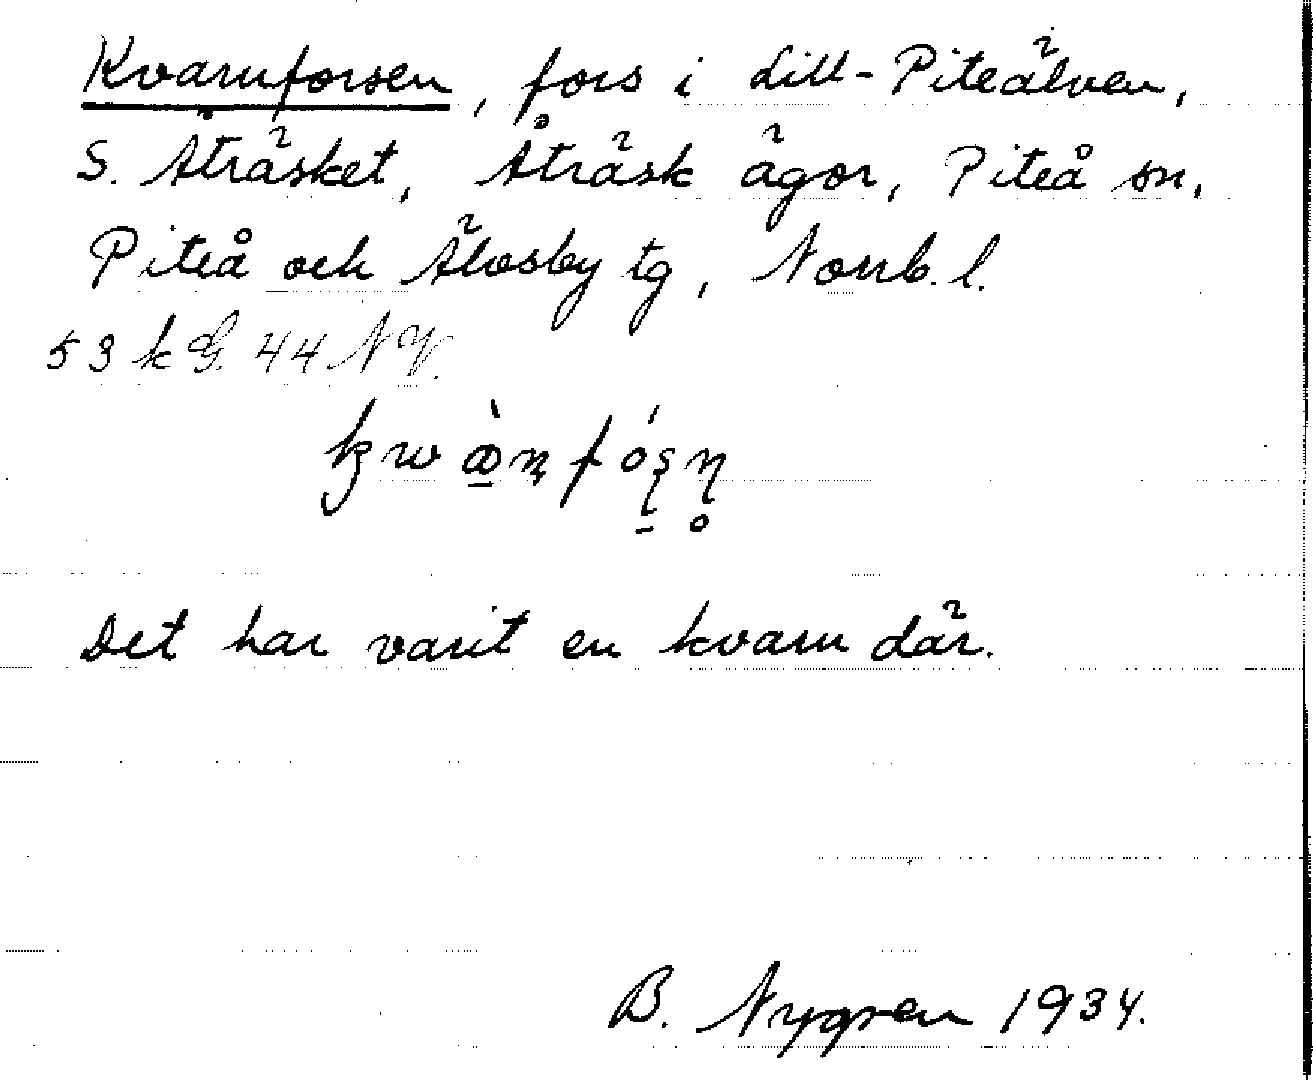 Kvarnforsen, fors i Lill-Piteälven,
S. Åträsket, Åträsk ägor, Piteå sn,
Piteå och Älvsby tg, Norrb. l.
53 k G. 44 N V.
Det har varit en kvarn där.
B. Nygren 1934.